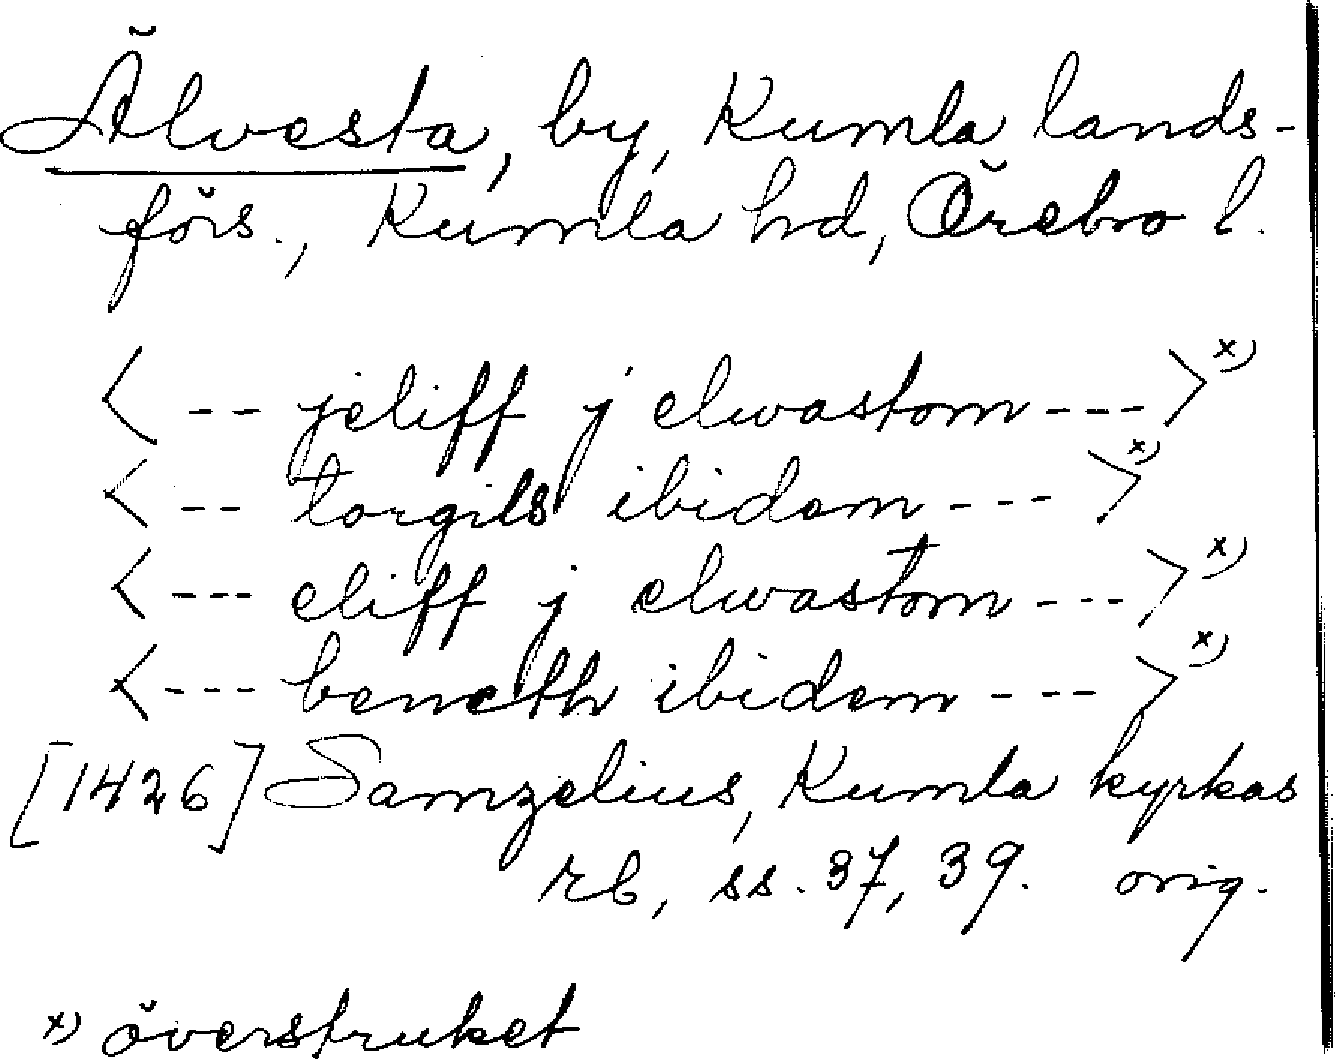 Älvesta, by, Kumla lands-
förs., Kumla hd, Örebro l.
< -- jeliff j elwastom --- > x)
< -- torgils ibidem --- > x)
< --- eliff j elwastom --- > x)
< --- beneth ibidem --- > x)
[1426] Samzelius, Kumla kyrkas
rb, ss. 37, 39. orig.
x) överstruket